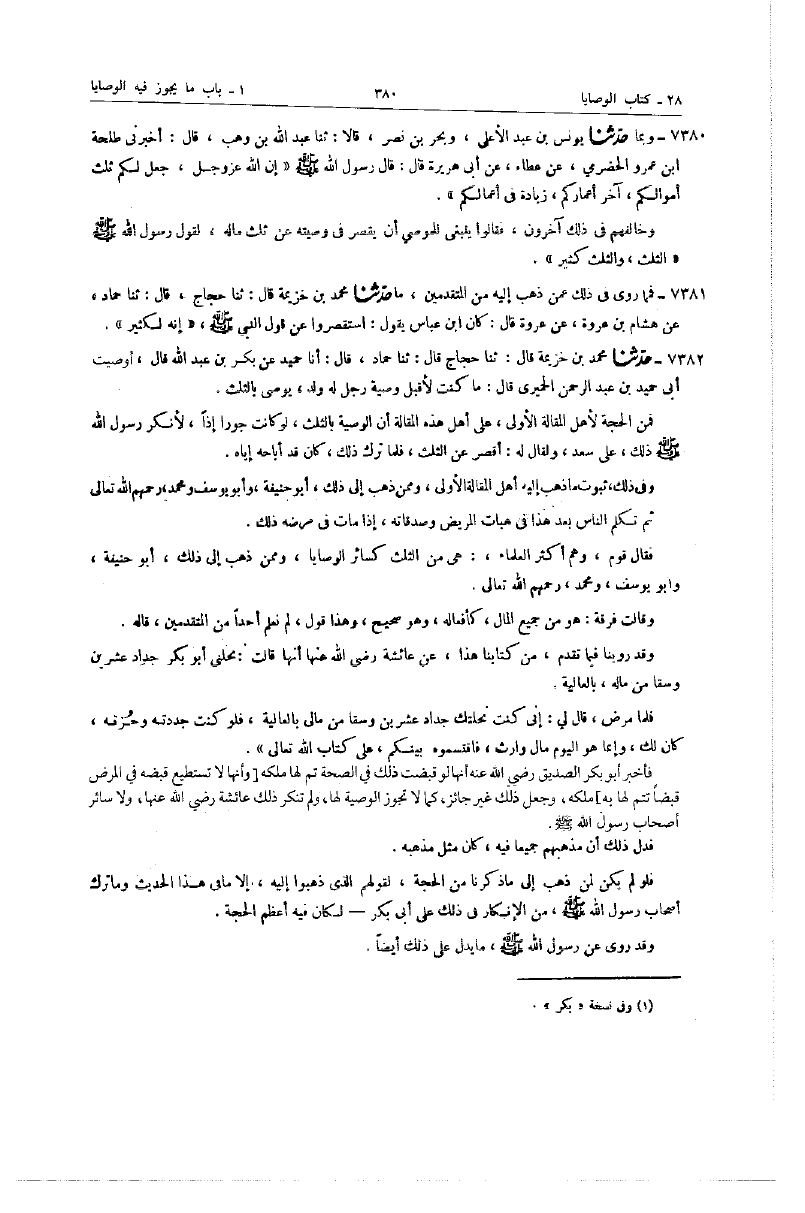 ٢٨ ـ كتاب الوصايا ٣٨٠ ١ ـ باب ما يجوز فيه الوصايا
٧٣٨٠ ـ وبما حدثنا يونس بن عبد الأعلى ، وبحر بن نصر ، قالا : ثنا عبد الله بن وهب ، قال : أخبرنى طلحة
ابن عمرو الحضرمي ، عن عطاء ، عن أبى هريرة قال : قال رسول الله ﷺ « إن الله عزوجل ، جعل لكم ثلث
أموالكم ، آخر أعماركم ، زيادة فى أعمالكم » .
وخالفهم فى ذلك آخرون ، فقالوا ينبغى للموصي أن يقصر فى وصيته عن ثلث ماله ، لقول رسول الله ﷺ
« الثلث ، والثلث كثير » .
٧٣٨١ ـ فما روى فى ذلك عمن ذهب إليه من المتقدمين ، ما حدثنا محمد بن خزيمة قال : ثنا حجاج ، قال : ثنا حماد ،
عن هشام بن عروة ، عن عروة قال : كان ابن عباس يقول : استقصروا عن قول النبي ﷺ ، « إنه لكثير » .
٧٣٨٢ ـ حدثنا محمد بن خزيمة قال : ثنا حجاج قال : ثنا حماد ، قال : أنا حميد عن بكر بن عبد الله قال ، أوصيت
أبى حميد بن عبد الرحمن الحميرى قال : ما كنت لأقبل وصية رجل له ولد ، يوصى بالثلث .
فمن الحجة لأهل المقالة الأولى ، على أهل هذه المقالة أن الوصية بالثلث ، لو كانت جورا إذاً ، لأنكر رسول الله
ﷺ ذلك ، على سعد ، ولقال له : أقصر عن الثلث ، فلما ترك ذلك ، كان قد أباحه إياه .
وفى ذلك، ثبوت ما ذهب إليه أهل المقالة الأولى ، وممن ذهب إلى ذلك ، أبو حنيفة ، وأبو يوسف ومحمد، رحمهم الله تعالى
ثم تكلم الناس بعد هذا فى هبات المريض وصدقاته ، إذا مات فى مرضه ذلك .
فقال قوم ، وهم أكثر العلماء ، : هى من الثلث كسائر الوصايا ، وممن ذهب إلى ذلك ، أبو حنيفة ،
وابو يوسف ، ومحمد ، رحمهم الله تعالى .
وقالت فرقة : هو من جميع المال ، كأفعاله ، وهو صحيح ، وهذا قول ، لم نعلم أحداً من المتقدمين ، قاله .
وقد روينا فيما تقدم ، من كتابنا هذا ، عن عائشة رضي الله عنها أنها قالت : نحلنى أبو بكر جداد عشرين
وسقا من ماله ، بالعالية .
فلما مرض ، قال لي : إنى كنت نحلتك جداد عشرين وسقا من مالى بالعالية ، فلو كنت جددته وحُزته ،
كان لك ، وإنما هو اليوم مال وارث ، فاقتسموه بينكم ، على كتاب الله تعالى » .
فأخبر أبو بكر الصديق رضي الله عنه أنها لو قبضت ذلك في الصحة تم لها ملكه [ وأنها لا تستطيع قبضه في المرض
قبضاً تتم لها به ] ملكه ، وجعل ذلك غير جائز، كما لا تجوز الوصية لها، ولم تنكر ذلك عائشة رضي الله عنها، ولا سائر
أصحاب رسول الله ﷺ .
فدل ذلك أن مذهبهم جميعا فيه ، كان مثل مذهبه .
فلو لم يكن لمن ذهب إلى ما ذكرنا من الحجة ، لقولهم الذى ذهبوا إليه ، إلا مافى هذا الحديث وماترك
أصحاب رسول الله ﷺ ، من الإنكار فى ذلك على أبى بكر — لكان فيه أعظم الحجة .
وقد روى عن رسول الله ﷺ ، مايدل على ذلك أيضاً .
(١) وفى نسخة « بكر » .